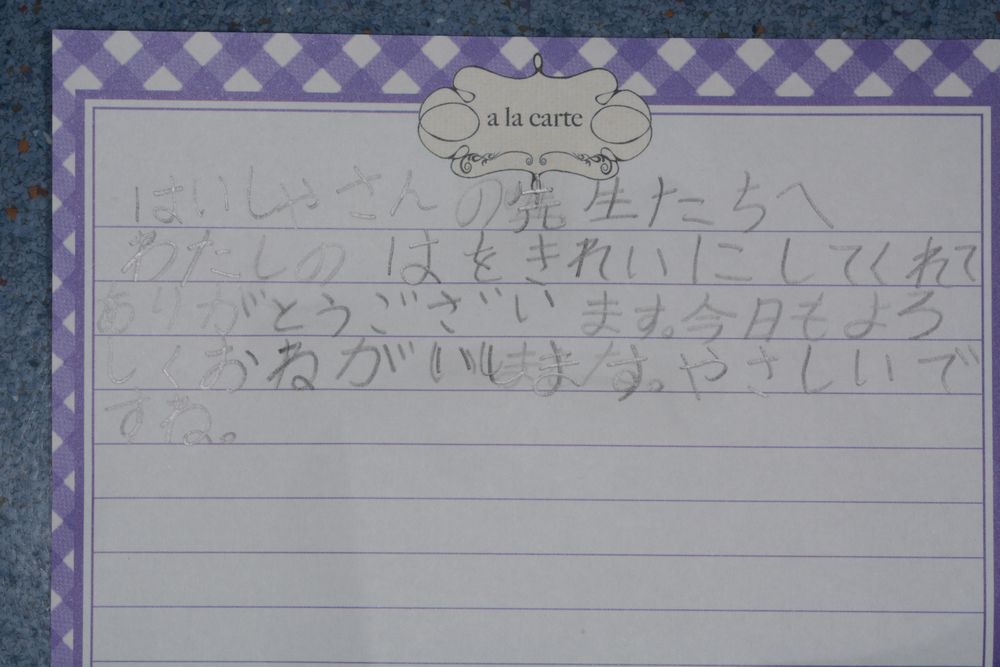 a la carte
はいしゃさんの先生たちへ
わたしの はをきれいにしてくれて
ありがとうございます。今日もよろ
しくおねがいします。やさしいで
すね。